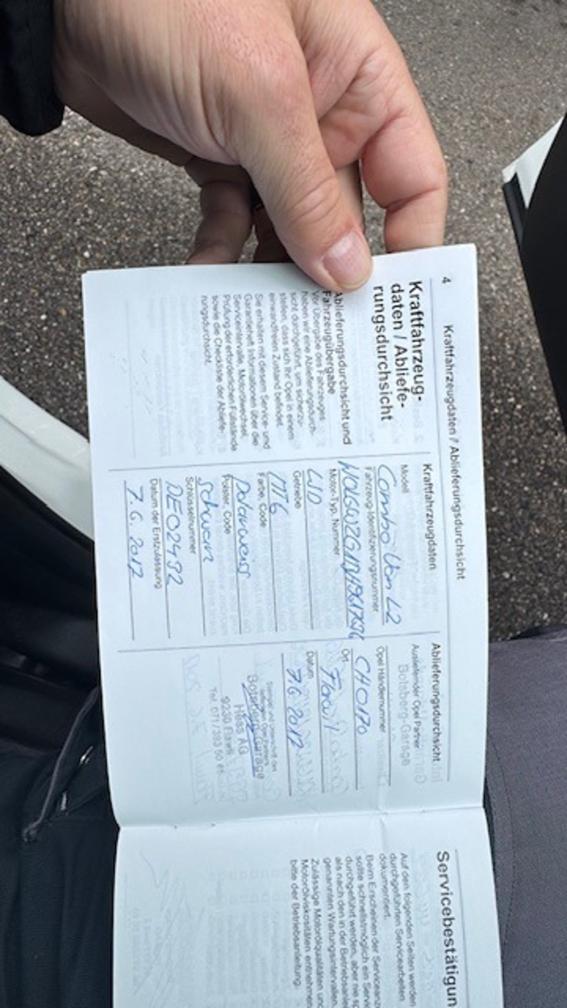 4
Kraftfahrzeugdaten / Ablieferungsdurchsicht
Kraftfahrzeug-
daten / Abliefe-
rungsdurchsicht
Ablieferungsdurchsicht und
Fahrzeugübergabe
Vor Übergabe des Fahrzeuges
haben wir eine Ablieferungsdurch-
sicht durchgeführt, um sicherzu-
stellen, dass sich Ihr Opel in einem
einwandfreien Zustand befindet.
Sie erhalten mit diesem Service- und
Garantieheft Informationen über die
Serviceintervalle, Motorölwechsel,
Prüfung der erforderlichen Füllstände
sowie die Checkliste der Abliefe-
rungsdurchsicht.
Kraftfahrzeugdaten
Modell
Combo Van L2
Fahrzeug-Identifizierungsnummer
Motor-Typ, Nummer
Getriebe
MT6
Farbe, Code
Polarweiss
Polster, Code
Schwarz
Schlüsselnummer
DE02492
Datum der Erstzulassung
7.6.2017
Ablieferungsdurchsicht
Ausliefernder Opel Partner
Botsberg-Garage
Opel Händlernummer
CH0170
Ort
Flawil
Datum
7.6.2017
Botsberg-Garage
AG
9230 Flawil
Servicebestätigun
Auf den folgenden Seiten werden
durchgeführten Servicearbeiten
dokumentiert.
Beim Erscheinen der Serviceanz
sollte schnellstmöglich ein Serv
durchgeführt werden, aber nie sp
als nach den in der Betriebsanle
genannten Wartungsintervallen.
Zulässige Motorölqualitäten und
Motorölviskositäten entnehmen
bitte der Betriebsanleitung.